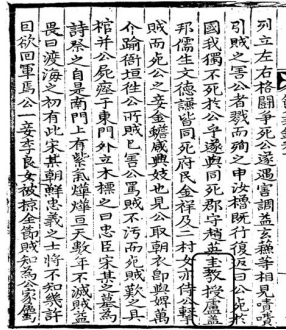 列立左右格鬪爭死公遂遇害調益玄蘇等相見嘖嘖
引賊之害公者戮而殉之申汝櫓旣行復返曰公死於
國我獨不死於公乎遂與同死郡守趙英圭敎授盧盖
邦儒生文德謙皆同死府民金祥及二村女亦侍公
賊而死公之妾金蟾咸興妓也見公取朝衣卽與婢萬
介踰衙垣往公所賊已害公罵賊不污而死賊歎之具
棺并公屍瘞于東門外立木標之曰忠臣宋某之墓爲
詩祭之自是南門上有紫氣燁燁亘天數年不滅賊益
畏曰渡海之初有此宋某朝鮮忠義之士將不知幾許
曰欲回軍焉公一妾李良女被掠全節賊知爲公家屬